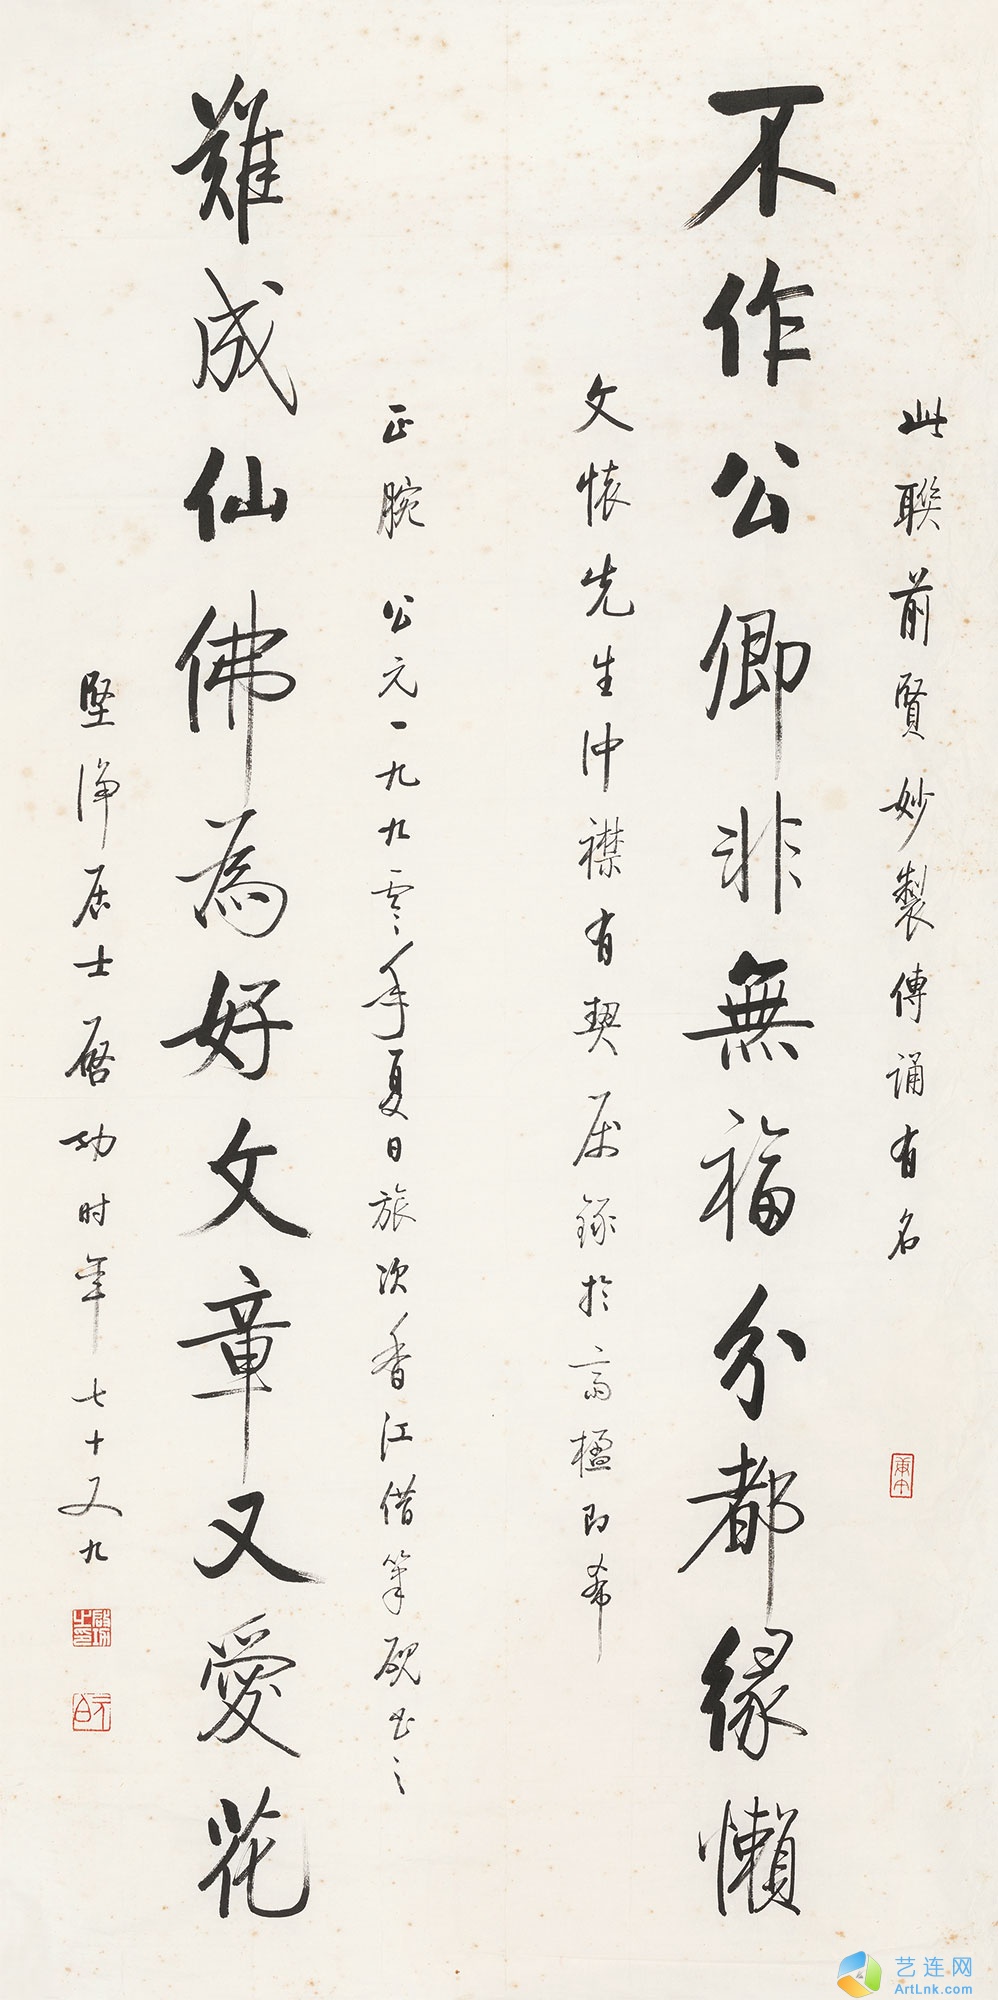 此聯前賢妙製傳誦有名
不作公卿非無福分都緣懶
文懷先生沖襟有契属録於高楹即希
正腕 公元一九九零年夏日旅次香江借筆硯書之
難成仙佛為好文章又愛花
堅净居士啓功时年七十又九
啟功之印
元白
艺连网
ArtLnk.com